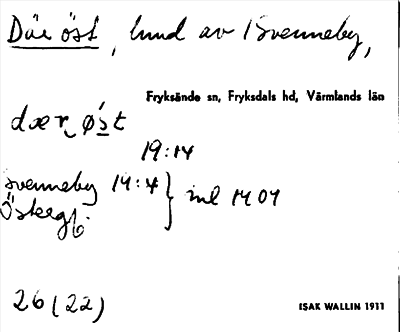 Där öst, lund av Svenneby,
Fryksände sn, Fryksdals hd, Värmlands län
dær øst
19:14
Svenneby 14:4
Östergb.
26 (22)
ISAK WALLIN 1911